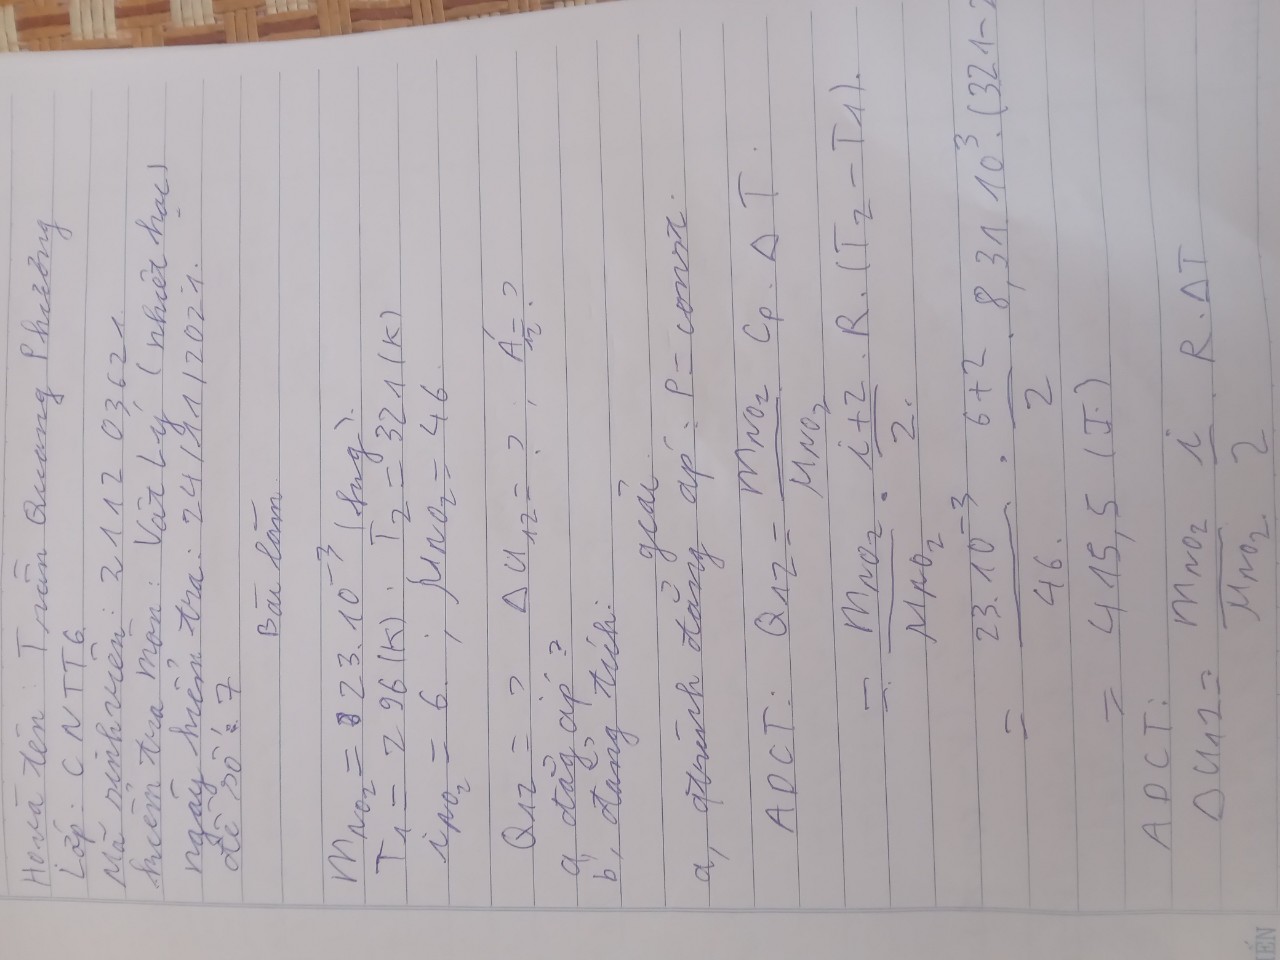 Họ và tên: Trần Quang Phương
Lớp: CNTT6
Mã sinh viên: 2112 03621.
kiểm tra môn: Vật Lý (nhiệt học)
ngày kiểm tra: 24/11/2021.
đề số: 7
Bài làm
m_NO₂ = 23.10⁻³ (kg).
T₁ = 296 (K); T₂ = 321 (K)
i_NO₂ = 6. ; μ_NO₂ = 46
Q₁₂ = ? ΔU₁₂ = ? ; A₁₂ = ?
a, đẳng áp?
b, đẳng tích:
giải
a, qtrình đẳng áp: P = const.
ADCT: Q₁₂ = m_NO₂/μ_NO₂ . Cp . ΔT.
= m_NO₂/μ_NO₂ . (i+2)/2 . R. (T₂ – T₁).
= 23.10⁻³/46 . (6+2)/2 . 8,31.10³. (321–2
= 415,5 (J)
ADCT:
ΔU₁₂ = m_NO₂/μ_NO₂ . i/2 . R.ΔT